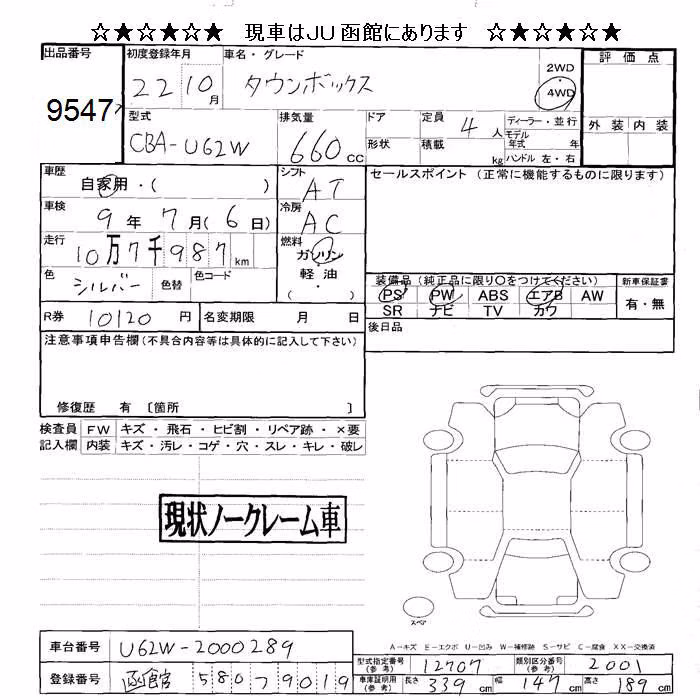 ☆★☆★☆★☆ 現車はJU函館にあります ☆★☆★☆★☆
出品番号 初度登録年月 車名・グレード 評価点
9547 22 10月 タウンボックス 2WD 4WD
型式 排気量 ドア 定員 ディーラー・並行 外装 内装
CBA-U62W 660cc 4人 モデル年式 年
形状 積載 kg ハンドル 左・右
車歴 自家用・( ) シフト AT セールスポイント(正常に機能するものに限ります)
車検 9年7月(6日) 冷房 AC
走行 10万7千987km 燃料 ガソリン・軽油・( )
色 シルバー 色替 色コード
装備品(純正品に限り〇をつけてください) 新車保証書
PS PW ABS エアB AW 有・無
SR ナビ TV カワ
R券 10120円 名変期限 月 日 後日品
注意事項申告欄(不具合内容等は具体的に記入して下さい)
修復歴 有 〔箇所 〕
検査員 FW キズ・飛石・ヒビ割・リペア跡・×要
記入欄 内装 キズ・汚レ・コゲ・穴・スレ・キレ・破レ
現状ノークレーム車
スペア
A-キズ E-エクボ U-凹み W-補修跡 S-サビ C-腐食 XX-交換済
車台番号 U62W-2000289
型式指定番号(参考) 12707 類別区分番号(参考) 2001
登録番号 函館 580 フ 9019
車庫証明用(参考) 長さ 339cm 幅 147cm 高さ 189cm